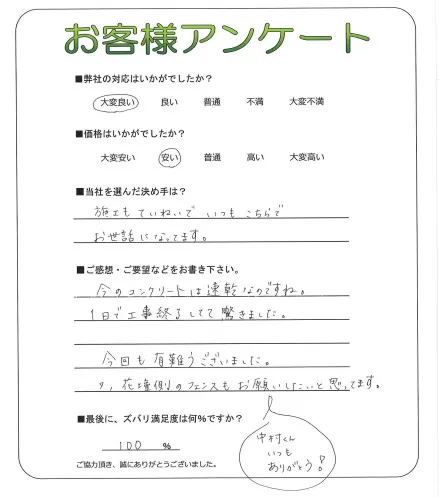 お客様アンケート
■弊社の対応はいかがでしたか？
大変良い 良い 普通 不満 大変不満
■価格はいかがでしたか？
大変安い 安い 普通 高い 大変高い
■当社を選んだ決め手は？
施工もていねいで いつも こちらで
お世話になってます。
■ご感想・ご要望などをお書き下さい。
今のコンクリートは速乾なのですね。
1日で工事終了してて驚きました。
今回も有難うございました。
花壇側のフェンスもお願いしたいと思ってます。
■最後に、ズバリ満足度は何%ですか？
100 %
ご協力頂き、誠にありがとうございました。
中村くん
いつも
ありがとう!